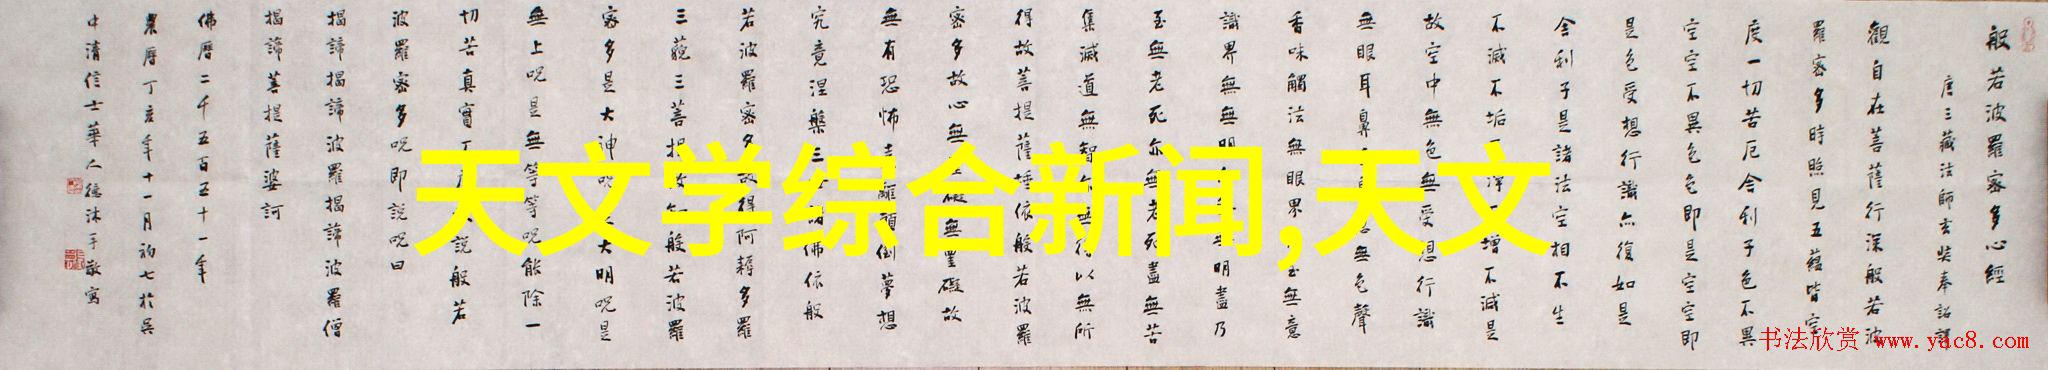 般若波羅密多心經
唐三藏法師玄奘奉詔譯
觀自在菩薩行深般若波
羅密多時照見五蘊皆空
度一切苦厄舍利子色不異
空空不異色色即是空空即
是色受想行識亦復如是
舍利子是諸法空相不生
不滅不垢增不減是
故空中無色無受想行識
無眼耳鼻無色聲
香味觸法無眼界至無意
識界無無明明盡乃
至無老死亦無老死盡無苦
集滅道無智以無所
得故菩提薩埵依般若波羅
密多故心無礙無罣礙故
無有恐怖離顛倒夢想
究竟涅槃三佛依般
若波羅密多故得阿耨多羅
三藐三菩提故般若波羅
密多是大神咒大明咒是
無上咒是無等等咒能除一
切苦真實說般若
波羅密多呪即說呪曰
揭諦揭諦波羅揭諦波羅僧
揭諦菩提薩婆訶
佛曆二千五百五十一年
農曆丁亥年十一月初七於吳
中清信士華人德沐手敬寫
天文学综合新闻,天文
书法欣赏 www.yac8.com